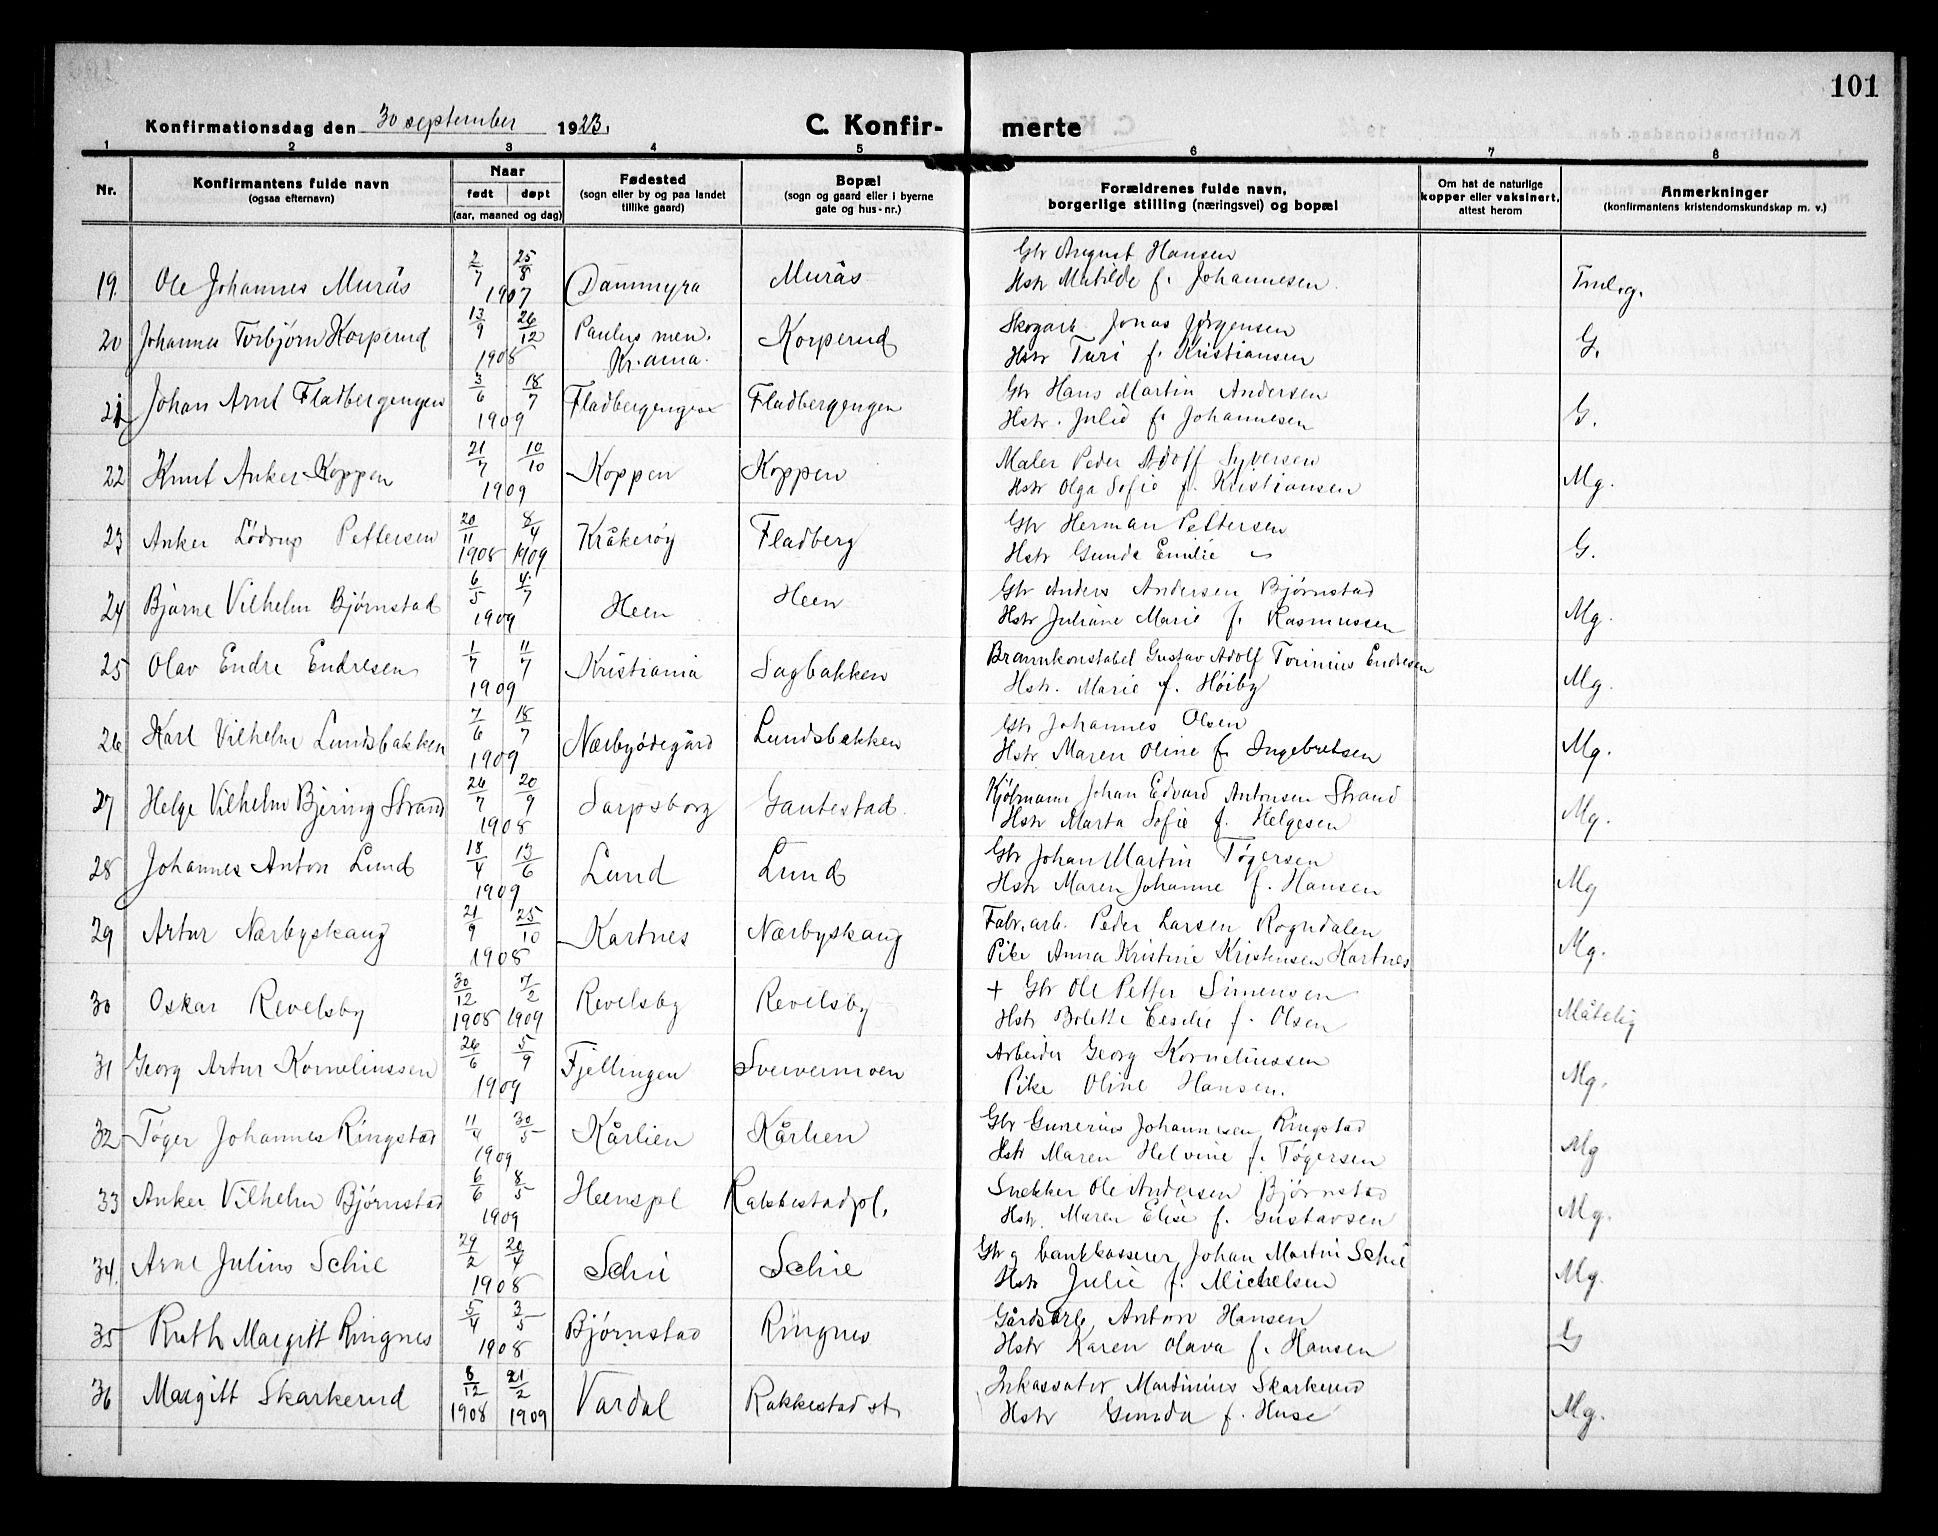 101
Konfirmationsdag den 30 september 1923.
C. Konfir- merte
1 2 3 4 5 6 7 8
Nr.
Konfirmantens fulde navn
(ogsaa efternavn)
Naar
født døpt
(aar, maaned og dag)
Fødested
(sogn eller by og paa landet
tillike gaard)
Bopæl
(sogn og gaard eller i byerne
gate og hus-nr.)
Forældrenes fulde navn,
borgerlige stilling (næringsvei) og bopæl
Om hat de naturlige
kopper eller vaksinert,
attest herom
Anmerkninger
(konfirmantens kristendomskundskap m. v.)
19. Ole Johannes Murås 2/7 25/8 1907 Dammyra Murås Gbr August Hansen
Hstr Matilde f. Johannesen.
20 Johannes Torbjørn Korperud 13/9 26/12 1908 Paulus men. Kr.ania. Korperud Skogarb. Jonas Jørgensen G.
Hstr Turi f. Kristiansen
21 Johan Arnt Fladbergengen 3/6 18/7 1909 Fladbergengen Fladbergengen Gbr Hans Martin Andersen G.
Hstr. Julie f. Johannesen
22 Knut Anker Koppen 21/7 10/10 1909 Koppen Koppen Maler Peder Adolf Syversen Mg.
Hstr Olga Sofie f. Kristiansen
23 Anker Lödrup Pettersen 20/11 1908 8/4 1909 Kråkerøy Fladberg Gbr Herman Pettersen G.
Hstr Gunda Emilie
24 Bjarne Vilhelm Bjørnstad 6/5 4/7 1909 Heen Heen Gbr Anders Andersen Bjørnstad Mg.
Hstr Juliane Marie f. Rasmussen
25 Olav Endre Endresen 1/7 11/7 1909 Kristiania Sagbakken Brannkonstabel Gustav Adolf Torinius Endresen Mg.
Hstr. Marie f. Høiby
26 Karl Vilhelm Lundsbakken 7/6 18/7 1909 Nærbyødegård Lundsbakken Gbr Johannes Olsen Mg.
Hstr Maren Oline f. Ingebretsen
27 Helge Vilhelm Bjering Strand 26/7 20/9 1908 Sarpsborg Gautestad Kjøbmann Johan Edvard Antonsen Strand Mg.
Hstr Marta Sofie f. Helgesen
28 Johannes Anton Lund 18/4 13/6 1909 Lund Lund Gbr Johan Martin Tøgersen Mg
Hstr Maren Johanne f. Hansen
29 Artur Nærbyskaug 21/9 25/10 1908 Kartnes Nærbyskaug Fabr.arb. Peder Larsen Rogndalen Mg.
Pike Anna Kristine Kristensen Kartnes
30 Oskar Revelsby 30/12 1908 7/2 1909 Revelsby Revelsby + Gbr Ole Petter Simensen Måtelig
Hstr Bolette Cesilie f. Olsen
31 Georg Artur Korneliussen 26/6 5/9 1909 Fjellingen Sververmoen Arbeider Georg Korneliussen Mg.
Pike Oline Hansen.
32 Tøger Johannes Ringstad 11/4 30/5 1909 Kårlien Kårlien Gbr Gunerius Johannesen Ringstad Mg
Hstr Maren Helvine f. Tøgersen
33 Anker Vilhelm Bjørnstad 6/6 8/5 1909 Heenspl Rakkestadpl. Snekker Ole Andersen Bjørnstad Mg.
Hstr. Maren Elise f. Gustavsen
34. Arne Julius Schie 29/2 20/4 1908 Schie Schie Gbr g bankkasserer Johan Martin Schie Mg.
Hstr Julie f. Michelsen
35 Ruth Margitt Ringnes 5/4 3/5 1908 Bjørnstad Ringnes Gårdsarb. Anton Hansen G
Hstr Karen Olava f. Hansen
36 Margitt Skarkerud 8/12 1908 21/2 1909 Vardal Rakkestad st. Inkassator Martinius Skarkerud Mg.
Hstr Gunda f. Huse